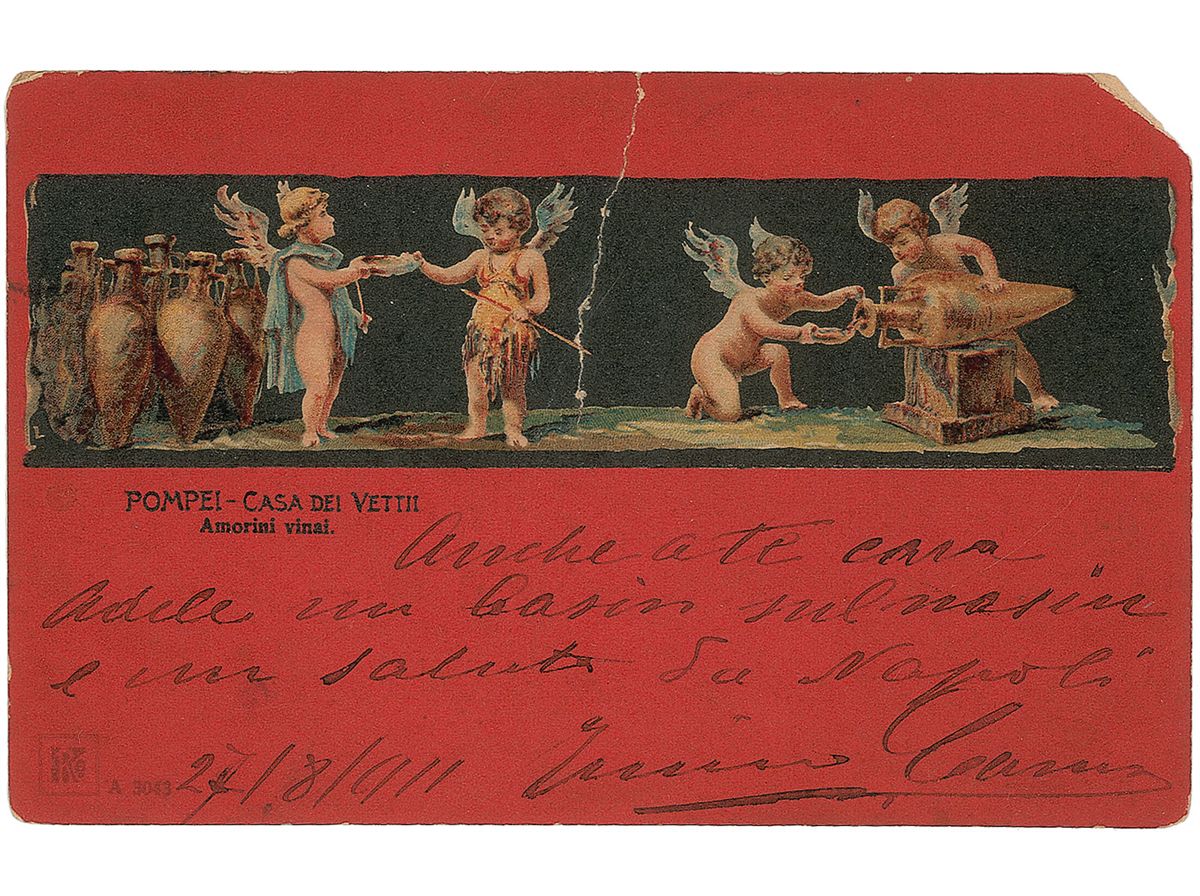 POMPEI - CASA DEI VETTII
Amorini vinai.
Anche a te cara
Adele un basin sul nasin
e un saluto da Napoli
A 3043 27/8/911